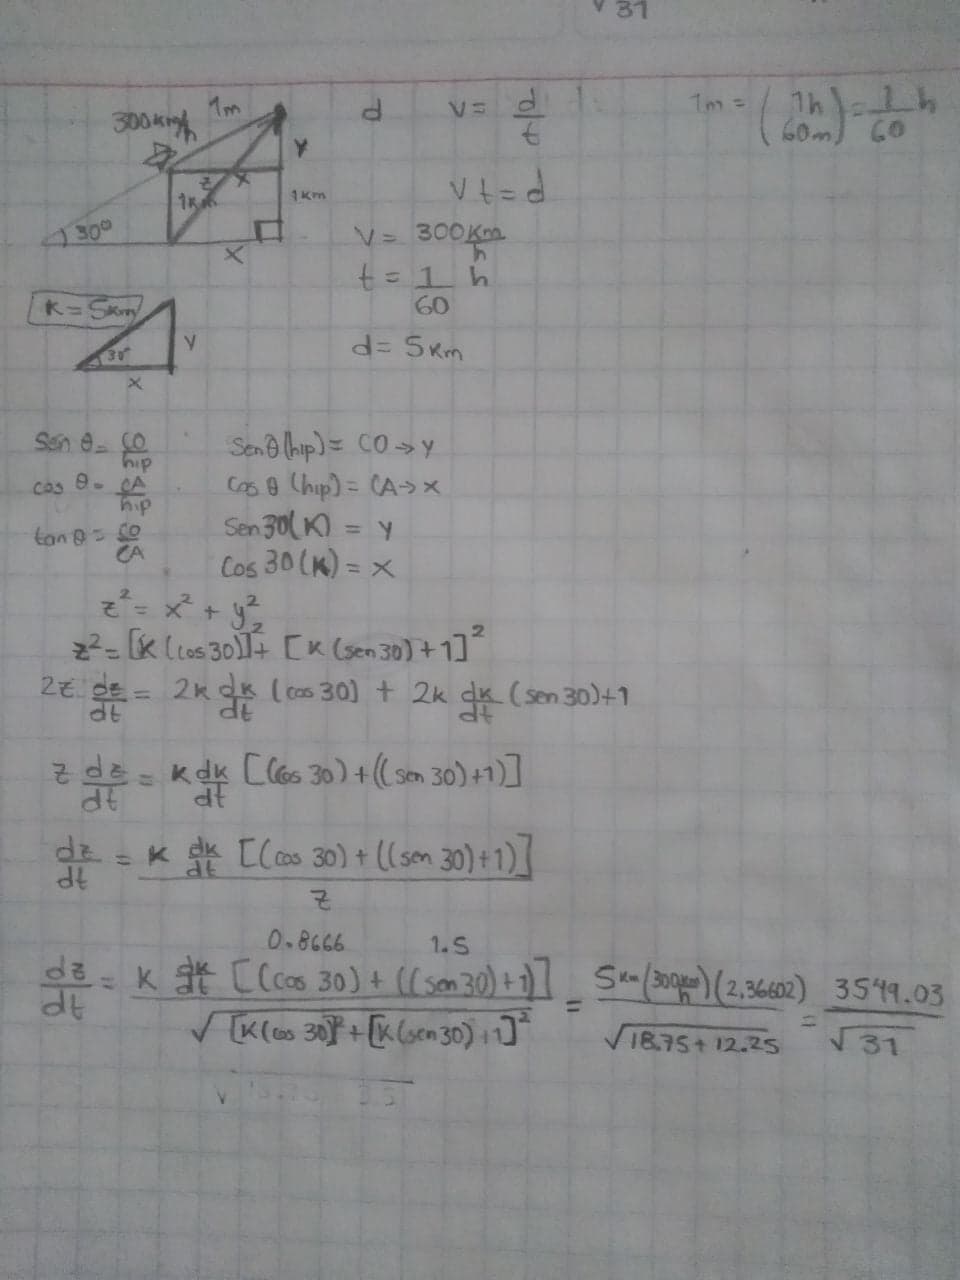 √31
300km/h
1m
y
z
x
1km
1km
30°
x
d
v = d/t
1m = (1h/60m) = 1/60 h
vt = d
v = 300 km/h
t = 1/60 h
d = 5km
K = 5km
30°
y
x
Sen θ = CO/hip
Sen θ (hip) = CO → y
cos θ = CA/hip
Cos θ (hip) = CA → x
tan θ = CO/CA
Sen 30 (K) = y
Cos 30 (K) = x
z² = x² + y²
z² = [K (cos 30)]² + [K (sen 30) + 1]²
2z dz/dt = 2k dk/dt (cos 30) + 2k dk/dt (sen 30) + 1
z dz/dt = k dk/dt [(Cos 30) + ((sen 30) + 1)]
dz/dt = K dk/dt [(cos 30) + ((sen 30) + 1)] / z
0.8666 1.5
dz/dt = K dk/dt [(cos 30) + ((sen 30) + 1)] / √[K(cos 30)]² + [K(sen 30) + 1]² = 5km (300km/h) (2,36602) / √18.75 + 12.25 = 3549.03 / √31